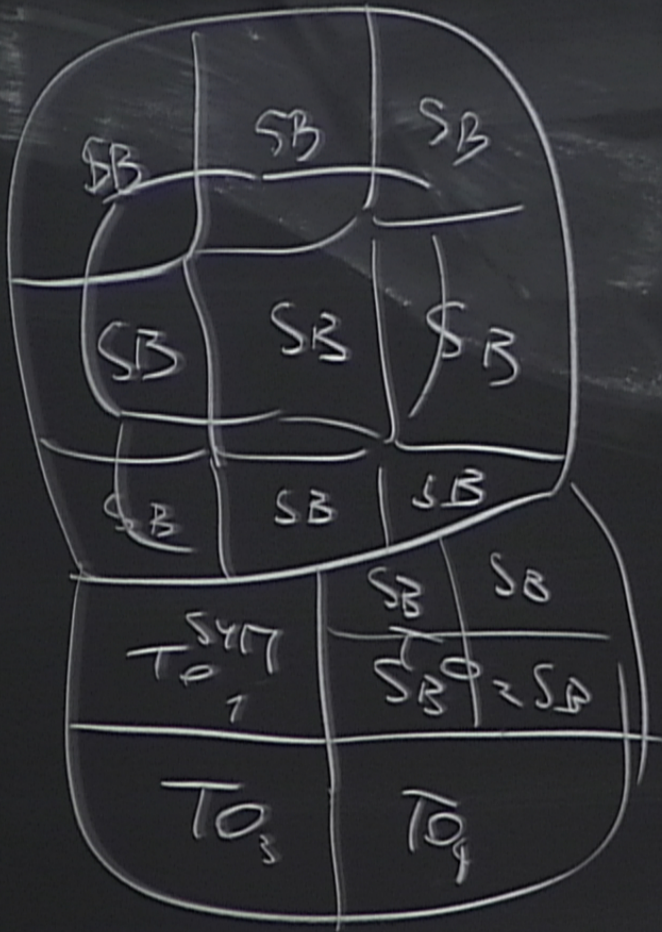 SB SB SB
SB SB SB
SB SB SB
SB SB
SYM
TO₁ TO₂
SB SB
TO₃ TO₄